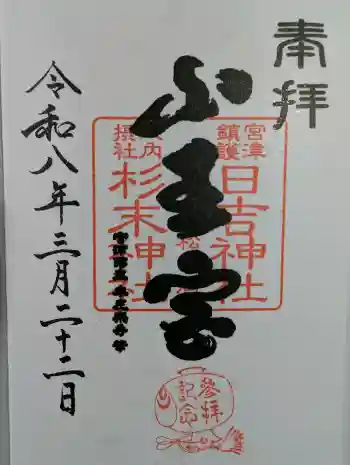 奉拝
宮津
鎮護
日吉神社
山王宮
境内
摂社
杉末神社
令和八年三月二十二日
参拝
記念